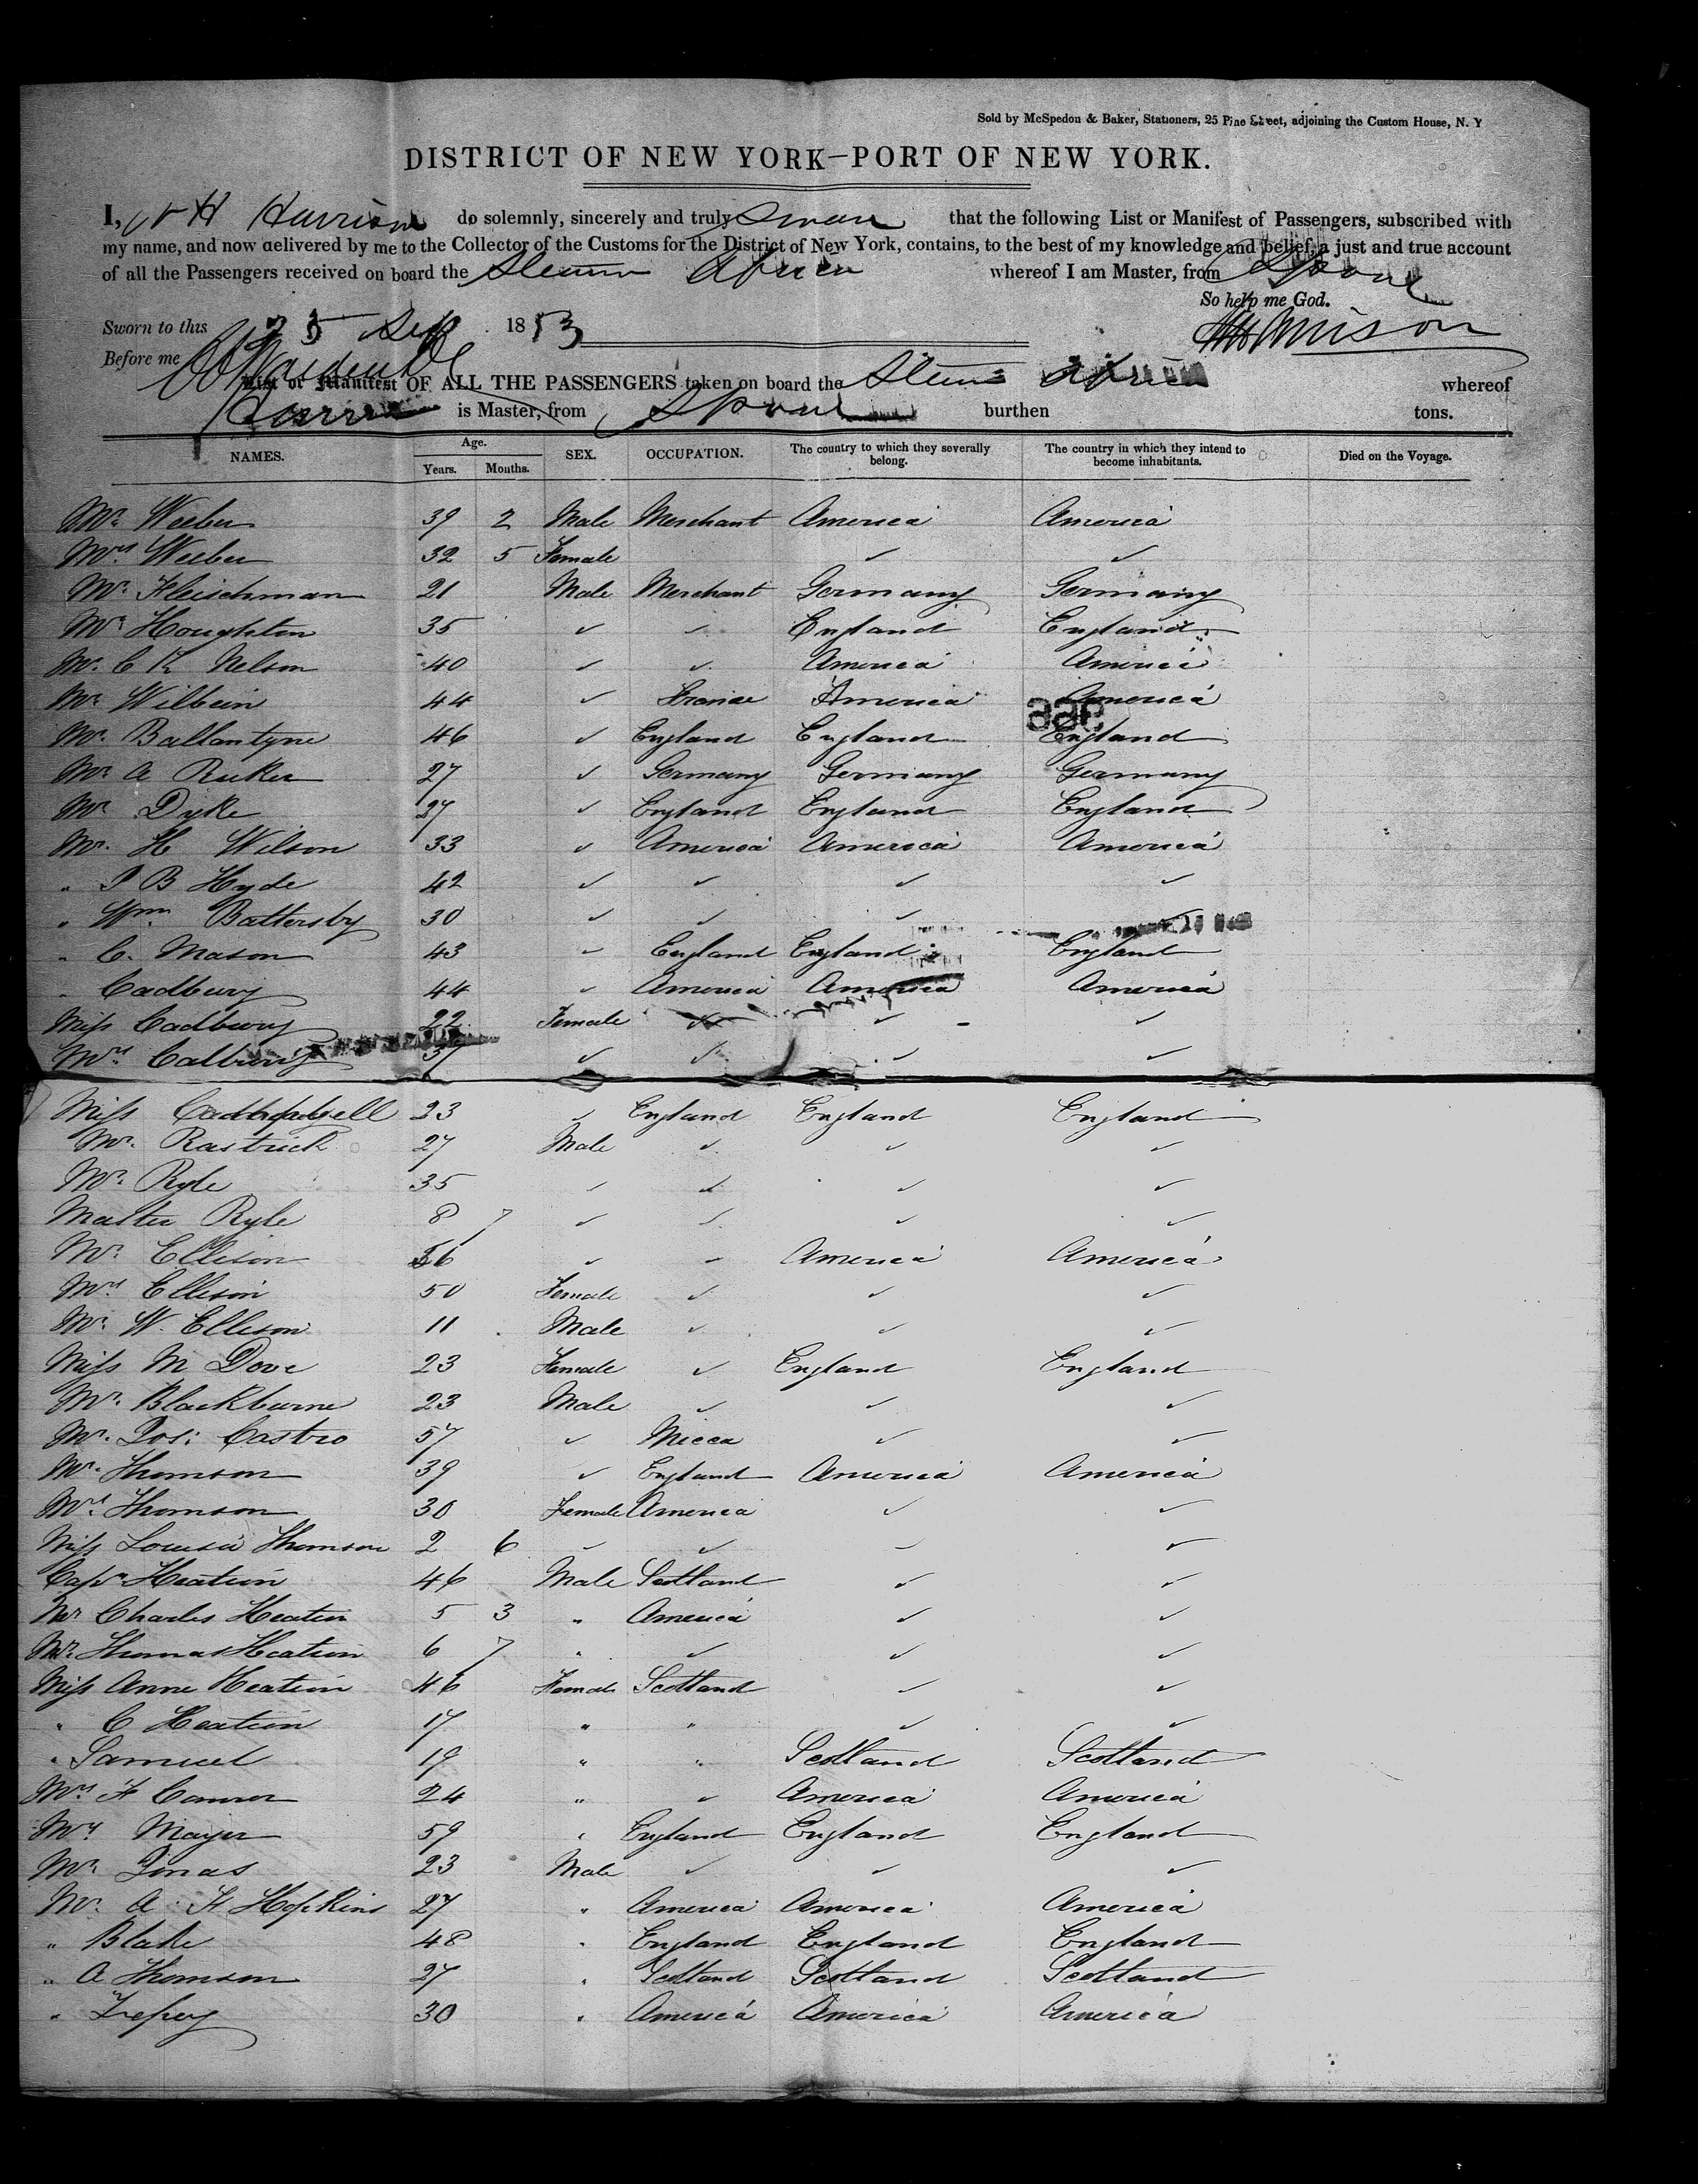 Sold by McSpedon & Baker, Stationers, 25 Pine Street, adjoining the Custom House, N. Y
DISTRICT OF NEW YORK—PORT OF NEW YORK.
I, H Harrison do solemnly, sincerely and truly Swear that the following List or Manifest of Passengers, subscribed with
my name, and now delivered by me to the Collector of the Customs for the District of New York, contains, to the best of my knowledge and belief, a just and true account
of all the Passengers received on board the Steamer Africa whereof I am Master, from Lpool
So help me God.
Sworn to this 25 Sep 1853 Harrison
Before me
List or Manifest OF ALL THE PASSENGERS taken on board the Steamer Africa whereof
Harrison is Master, from Lpool burthen tons.
NAMES. Age. Years. Months. SEX. OCCUPATION. The country to which they severally belong. The country in which they intend to become inhabitants. Died on the Voyage.
Mr. Weeber 39 2 Male Merchant America America
Mrs. Weeber 32 5 Female ✓ ✓
Mr. Fleischman 21 Male Merchant Germany Germany
Mr. Houghton 35 ✓ ✓ England England
Mr. C K Nelson 40 ✓ ✓ America America
Mr. Wilbein 44 ✓ France America America
996
Mr. Ballantyne 46 ✓ England England England
Mr. A Rucker 27 ✓ Germany Germany Germany
Mr. Dyke 27 ✓ England England England
Mr. H Wilson 33 ✓ America America America
" P B Hyde 42 ✓ ✓ ✓ ✓
" Wm. Battersby 30 ✓ ✓ ✓ ✓
" C. Mason 43 ✓ England England England
" Cadbury 44 ✓ America America America
Miss Cadbury 22 Female ✓ ✓ ✓
Mrs. Calbury 37 ✓ ✓ ✓ ✓
Miss 23 ✓ England England England
Mr. Rastrick 27 Male ✓ ✓ ✓
Mr. Ryle 35 ✓ ✓ ✓ ✓
Master Ryle 8 7 ✓ ✓ ✓ ✓
Mr. Ellison 56 ✓ ✓ America America
Mrs. Ellison 50 Female ✓ ✓ ✓
Mr. W. Ellison 11 Male ✓ ✓ ✓
Miss M Dove 23 Female ✓ England England
Mr. Blackburne 23 Male ✓ ✓ ✓
Mr. Jos: Castro 57 ✓ Mecca ✓ ✓
Mr. Thomson 39 ✓ England America America
Mrs. Thomson 30 Female America ✓ ✓
Miss Louisa Thomson 2 6 ✓ ✓ ✓ ✓
Capn Heation 46 Male Scotland ✓ ✓
Mr Charles Heation 5 3 " America ✓ ✓
Mr. Thomas Heation 6 7 " ✓ ✓ ✓
Miss Anne Heation 46 Female Scotland ✓ ✓
" C Heation 17 " " ✓ ✓
" Samuel 19 " " Scotland Scotland
Mrs. F Connor 24 " ✓ America America
Mrs. Mayer 59 " England England England
Mr. Jonas 23 Male ✓ ✓ ✓
Mr. A. H Hopkins 27 " America America America
" Blake 48 " England England England
" A Thomson 27 " Scotland Scotland Scotland
" 30 " America America America